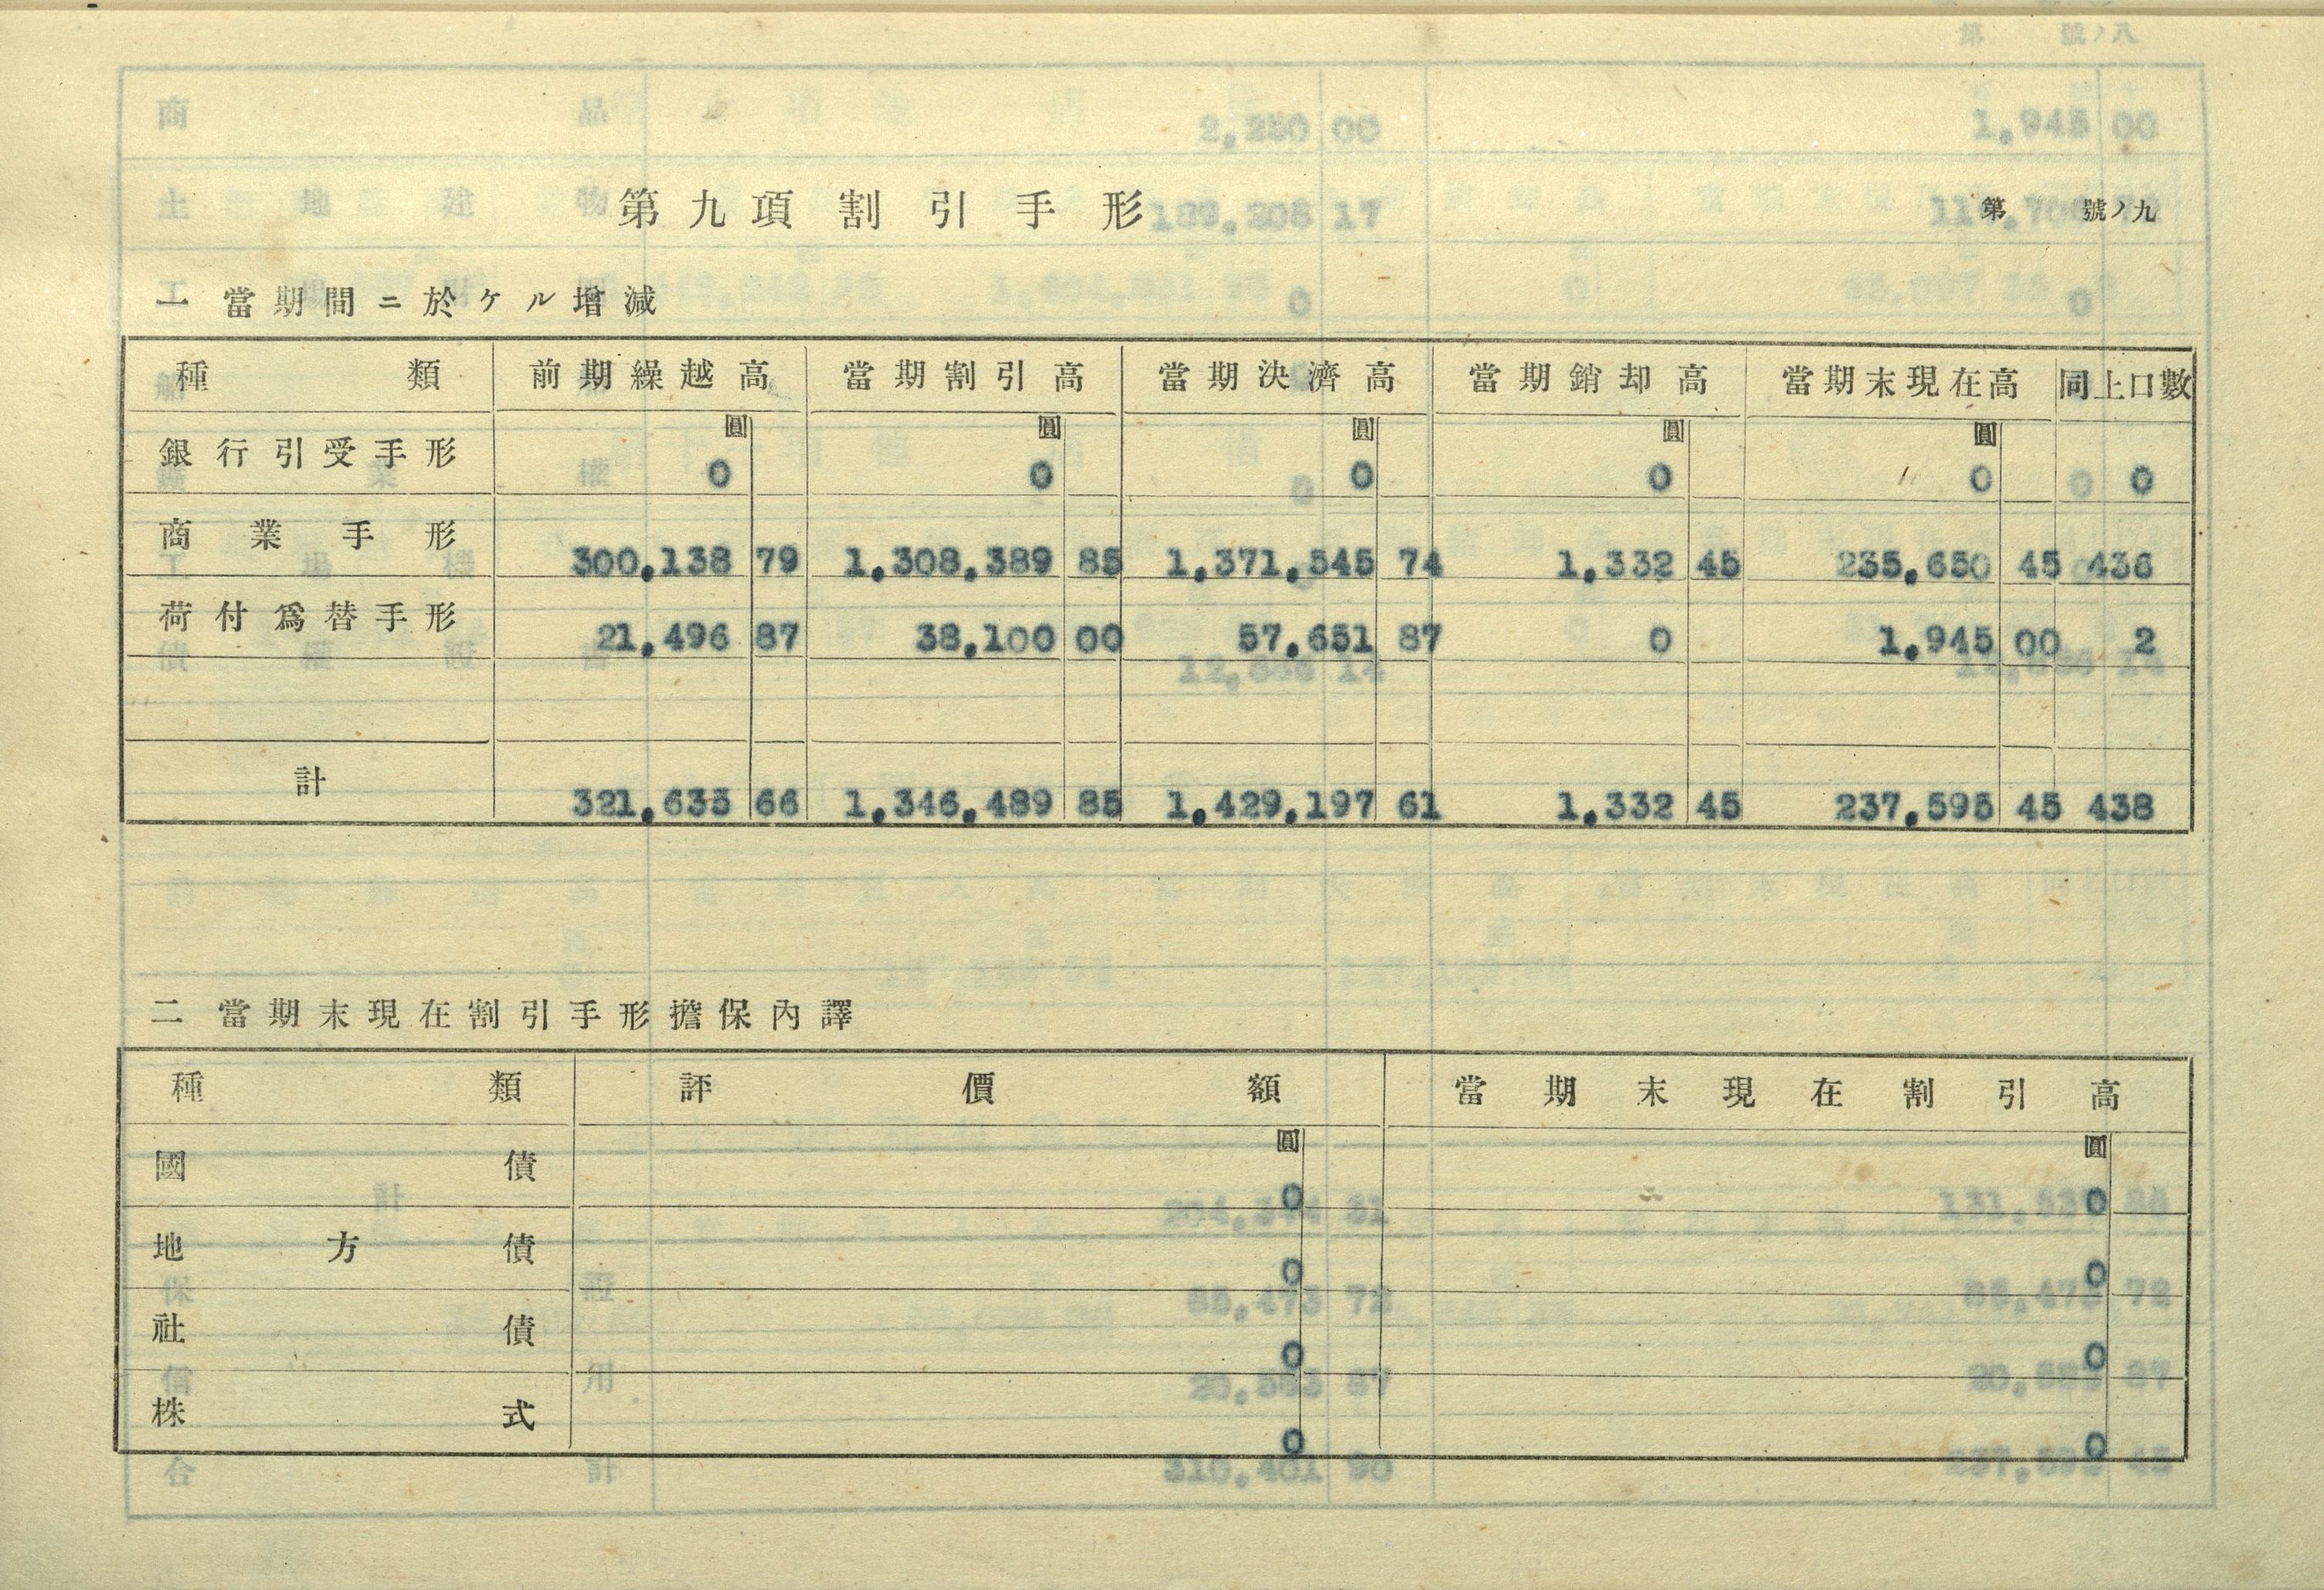 第九項 割引手形
第 號ノ九
一 當期間ニ於ケル增減
種類 前期繰越高 當期割引高 當期決濟高 當期銷却高 當期末現在高 同上口數
圓 圓 圓 圓 圓
銀行引受手形 0 0 0 0 0 0
商業手形 300,138 79 1,308,389 85 1,371,545 74 1,332 45 235,650 45 436
荷付爲替手形 21,496 87 38,100 00 57,651 87 0 1,945 00 2
計 321,635 66 1,346,489 85 1,429,197 61 1,332 45 237,595 45 438
二 當期末現在割引手形擔保內譯
種類 評價額 當期末現在割引高
圓 圓
國債 0 0
地方債 0 0
社債 0 0
株式 0 0